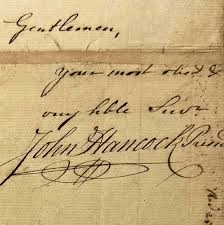 Gentlemen,
your most obed &
very hble Serv
John Hancock Presid